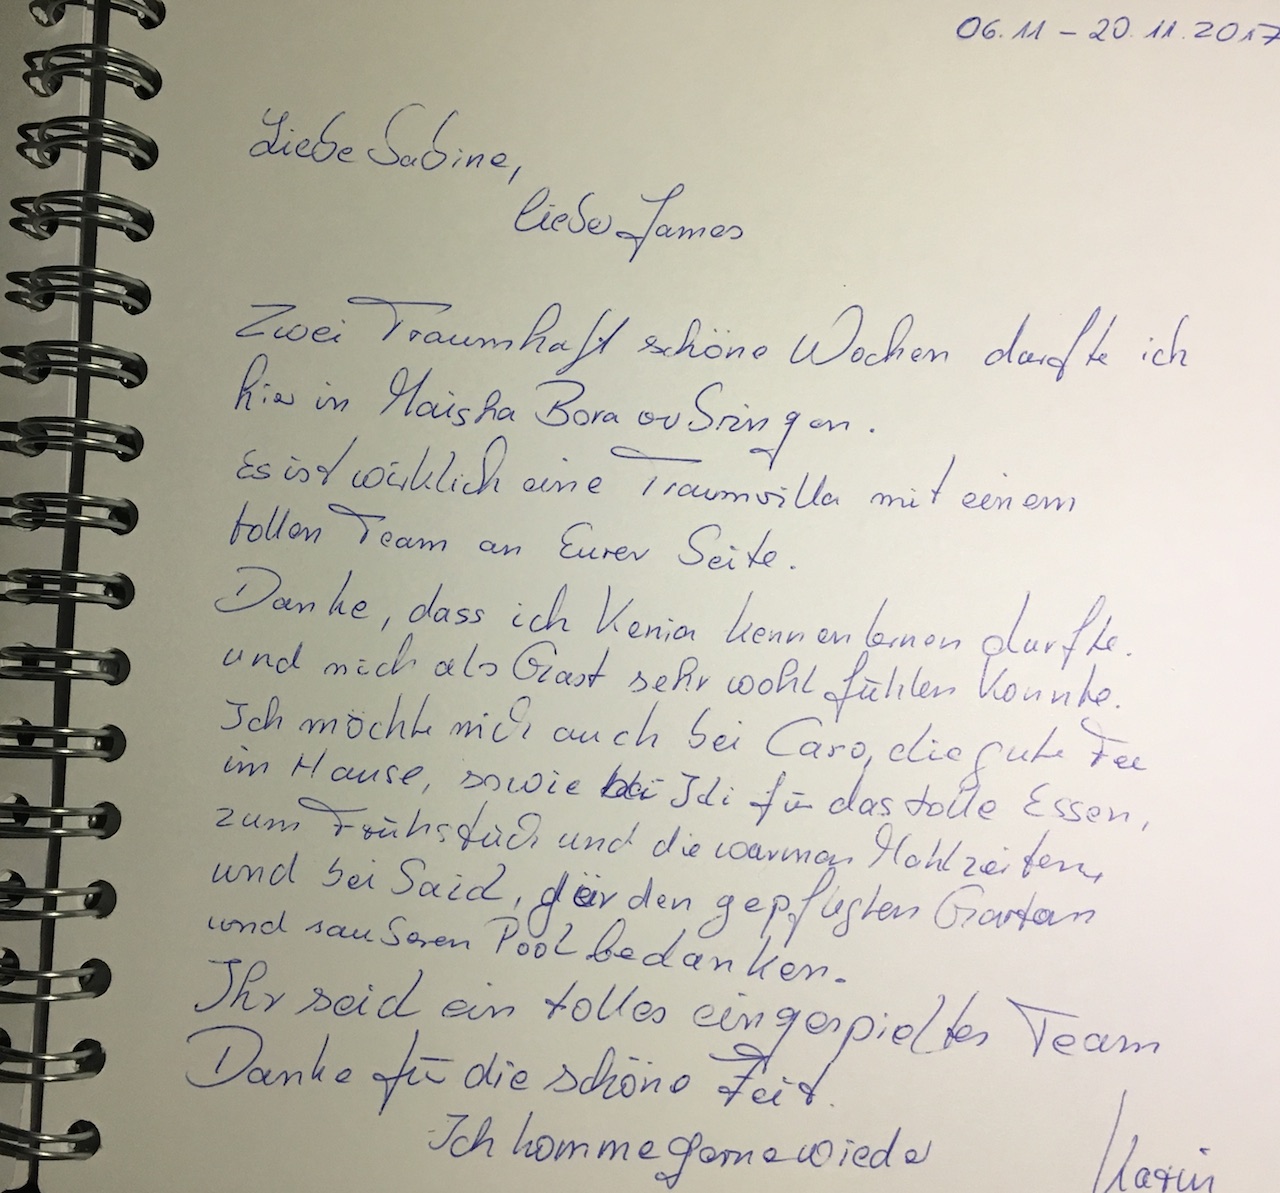 06.11 – 20.11.2017
Liebe Sabine,
lieber James
Zwei Traumhaft schöne Wochen durfte ich
hier in Maisha Bora verbringen.
Es ist wirklich eine Traumvilla mit einem
tollen Team an Eurer Seite.
Danke, dass ich Kenia kennenlernen durfte.
und mich als Gast sehr wohl fühlen konnte.
Ich möchte mich auch bei Caro, die gute Fee
im Hause, sowie bei Idi für das tolle Essen,
zum Frühstück und die warmen Mahlzeiten,
und bei Said, für den gepflegten Garten
und sauberen Pool bedanken.
Ihr seid ein tolles eingespieltes Team
Danke für die schöne Zeit.
Ich komme gerne wieder
Karin